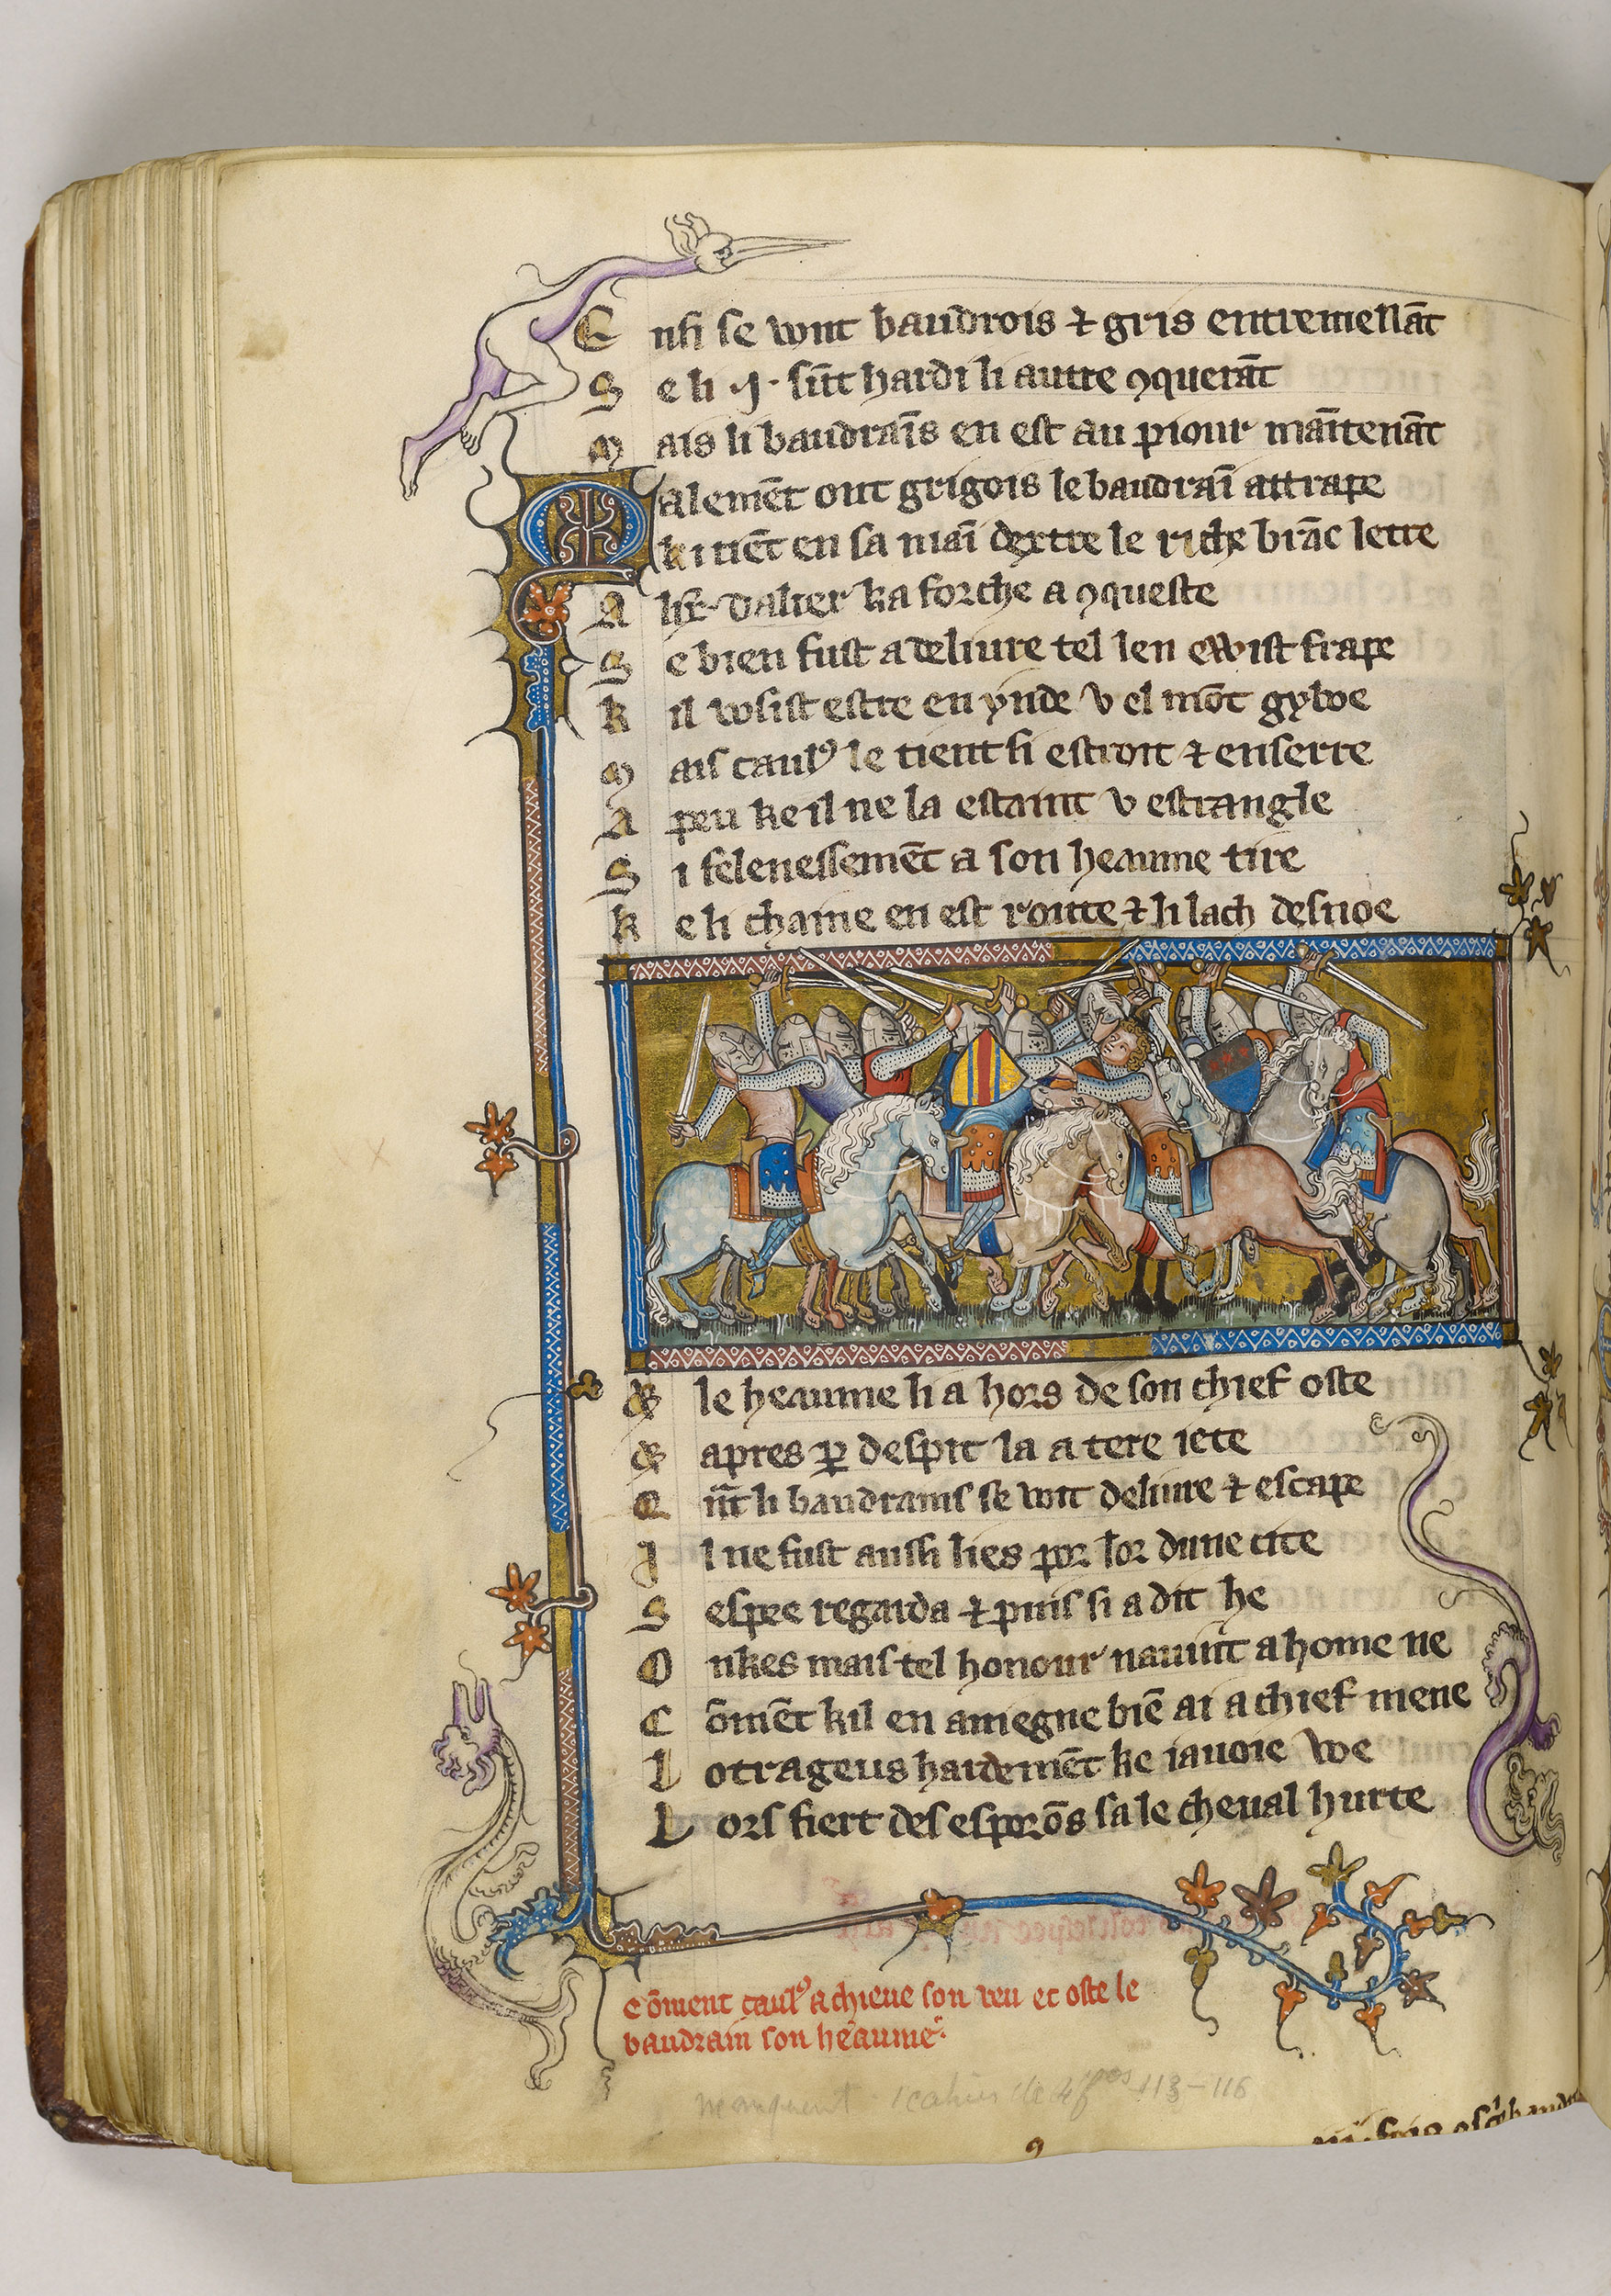 E nsi se vont baudrois ⁊ gris entremellāt
S e li .j. sūt hardi li autre ꝯquerāt
M ais li baudraīs en est au piour māitenāt
M alemēt ont grigois le baudraī attrape
ki tiēt en sa maī dextre le riche brāc lettre
A lix̄. dalier ka forche a ꝯqueste
S e bien fust a deliure tel len ewist frape
k il vosist estre en ynde v el mōt gyboe
M ais caulꝰ le tient si estroit ⁊ enserre
A peu ke il ne la estaint v estrangle
S i felenessemēt a son heaume tire
k e li chaine en est route ⁊ li lach desnoe
& le heaume li a hors de son chief oste
& apres ꝑ despit la a tere iete
Q n̄t li baudrains se voit deliure ⁊ escape
J l ne fust ausi lies por lor dune cite
S espee regarda ⁊ puis si a dit he
O nkes mais tel honour nauint a home ne
C ōmēt kil en amegne biē ai a chief mene
L otrageus hardemēt ke iauoie voe
L ors fiert des esporōs sa le cheual hurte
cōment caulꝰ achieue son veu et oste le
baudrain son heaume
manquent 1 cahier de 4 fos 113-116